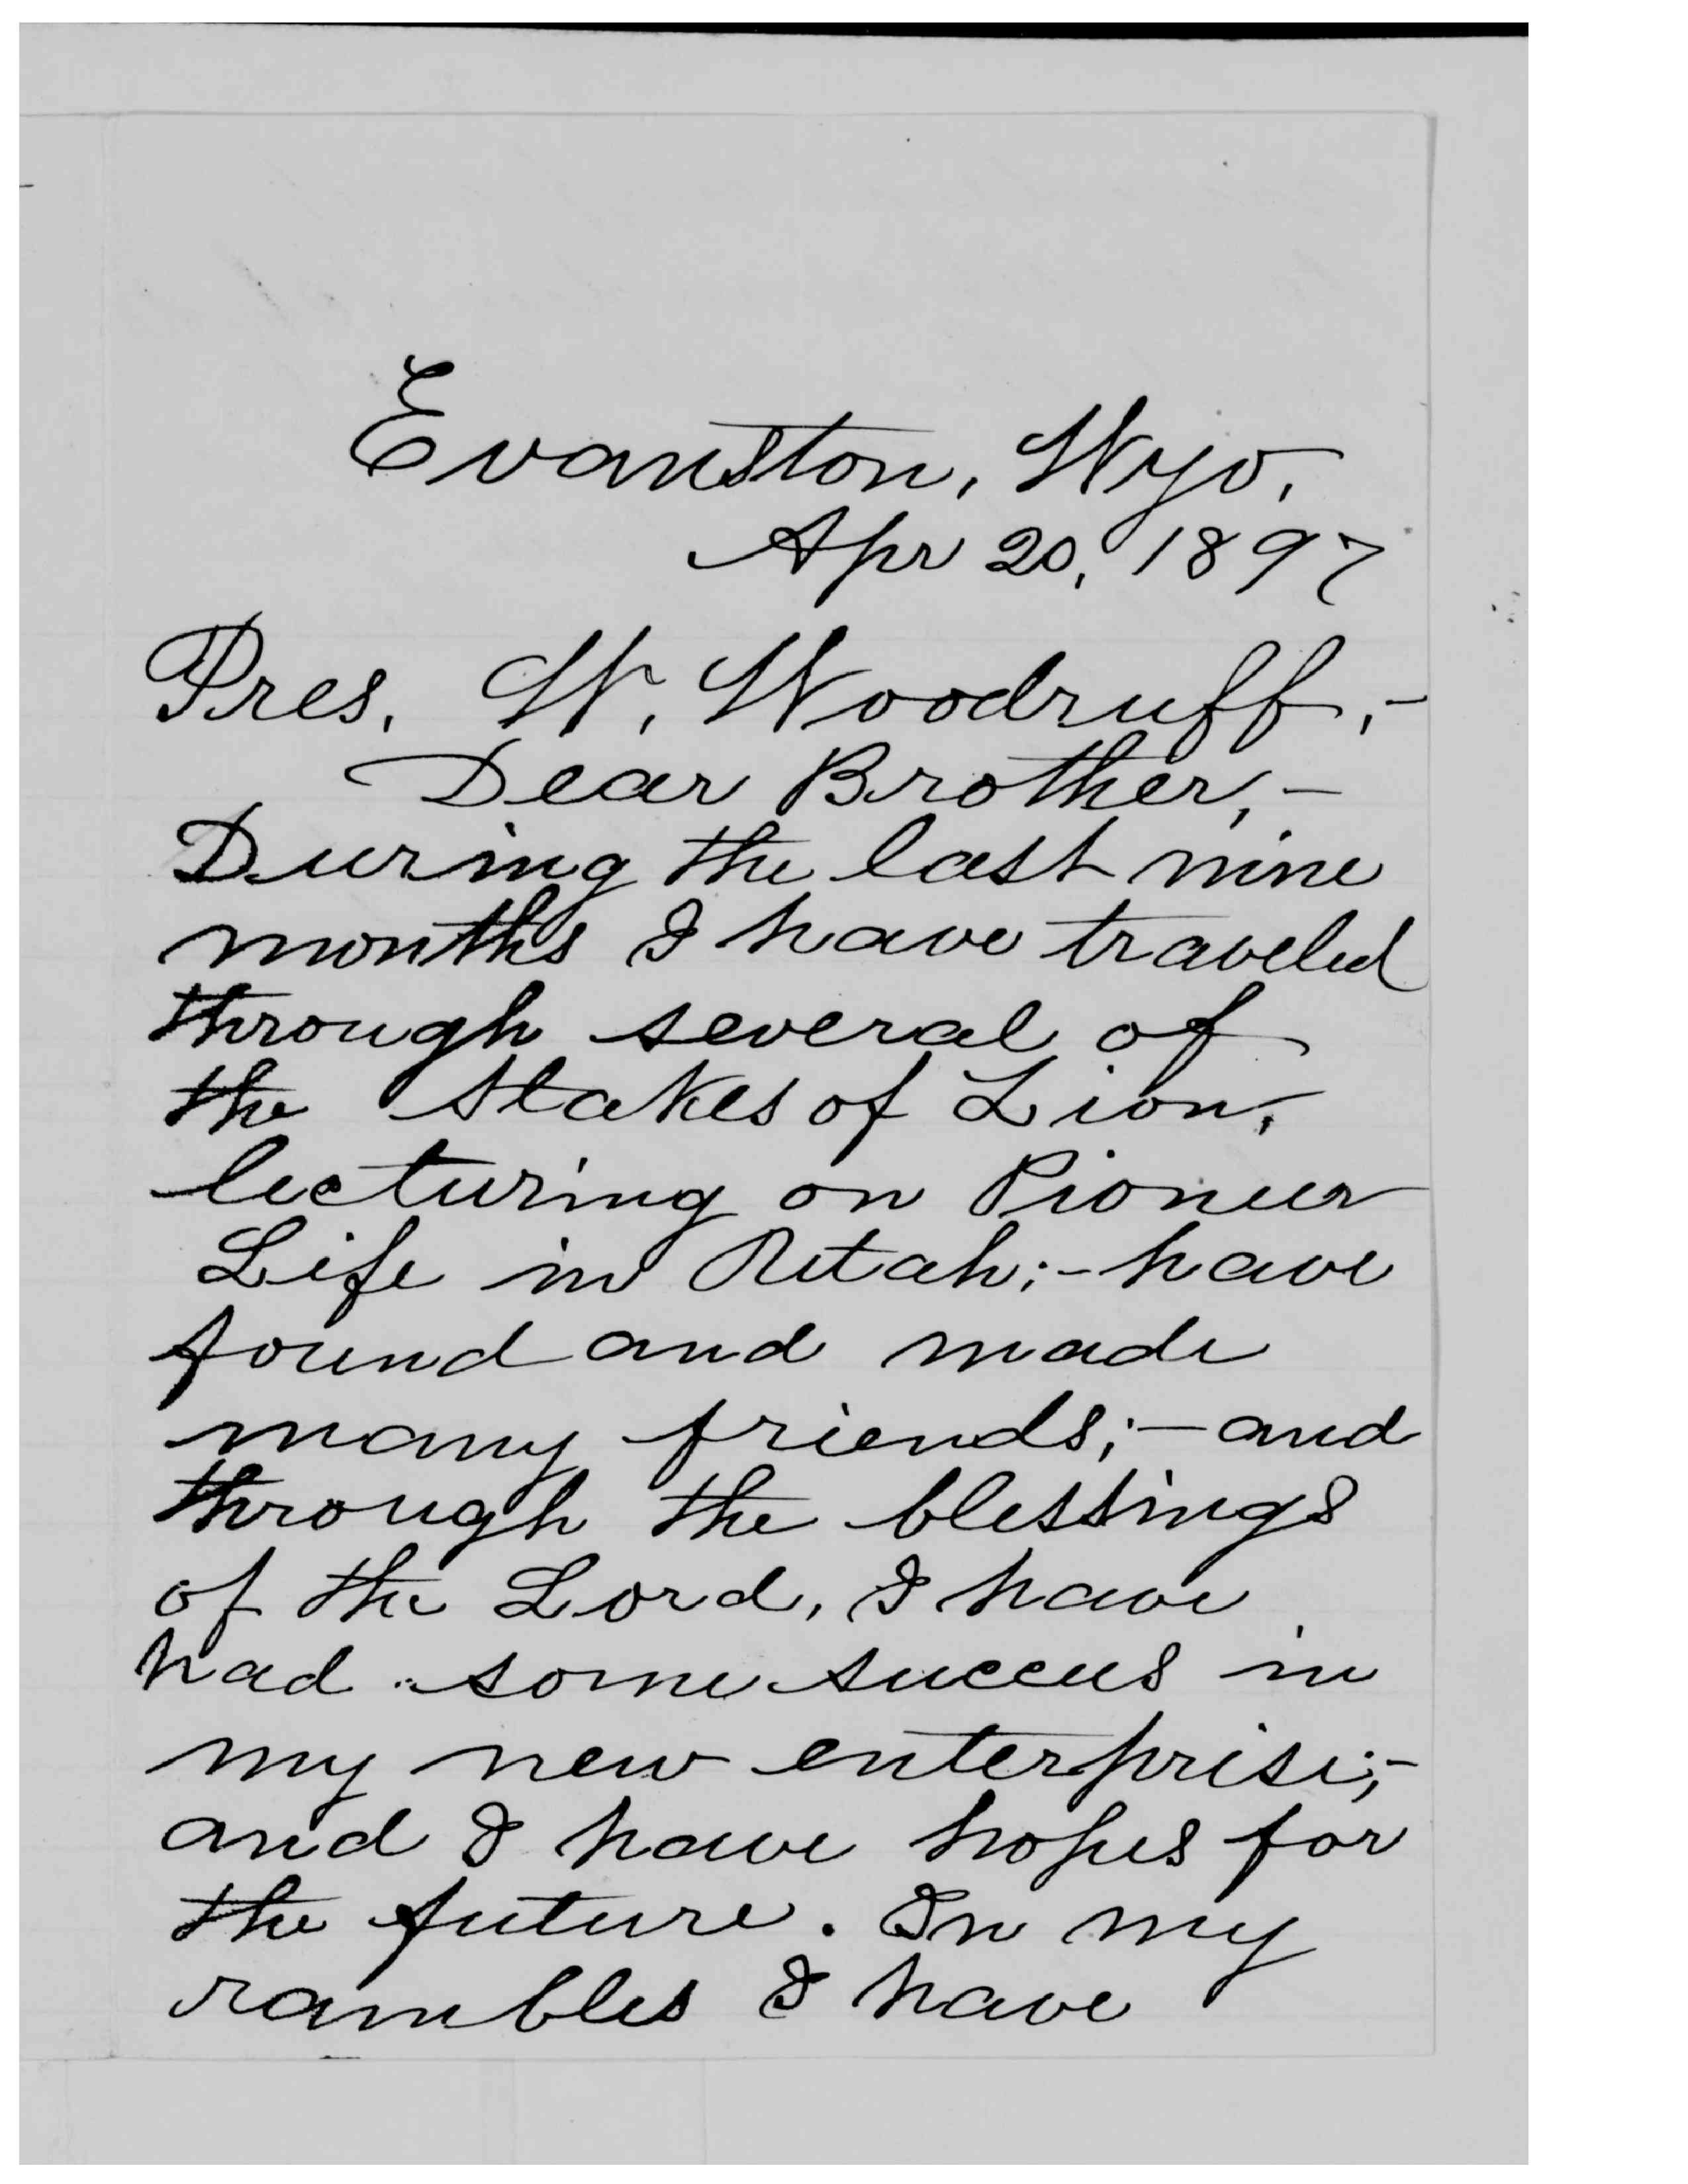 Evanston, Wyo,
Apr 20, 1897
Pres. W. Woodruff,-
Dear Brother,-
During the last nine
months I have traveled
through several of
the Stakes of Zion,
lecturing on Pioneer
Life in Utah;- have
found and made
many friends;- and
through the blessings
of the Lord, I have
had some success in
my new enterprise;-
and I have hopes for
the future. In my
rambles I have